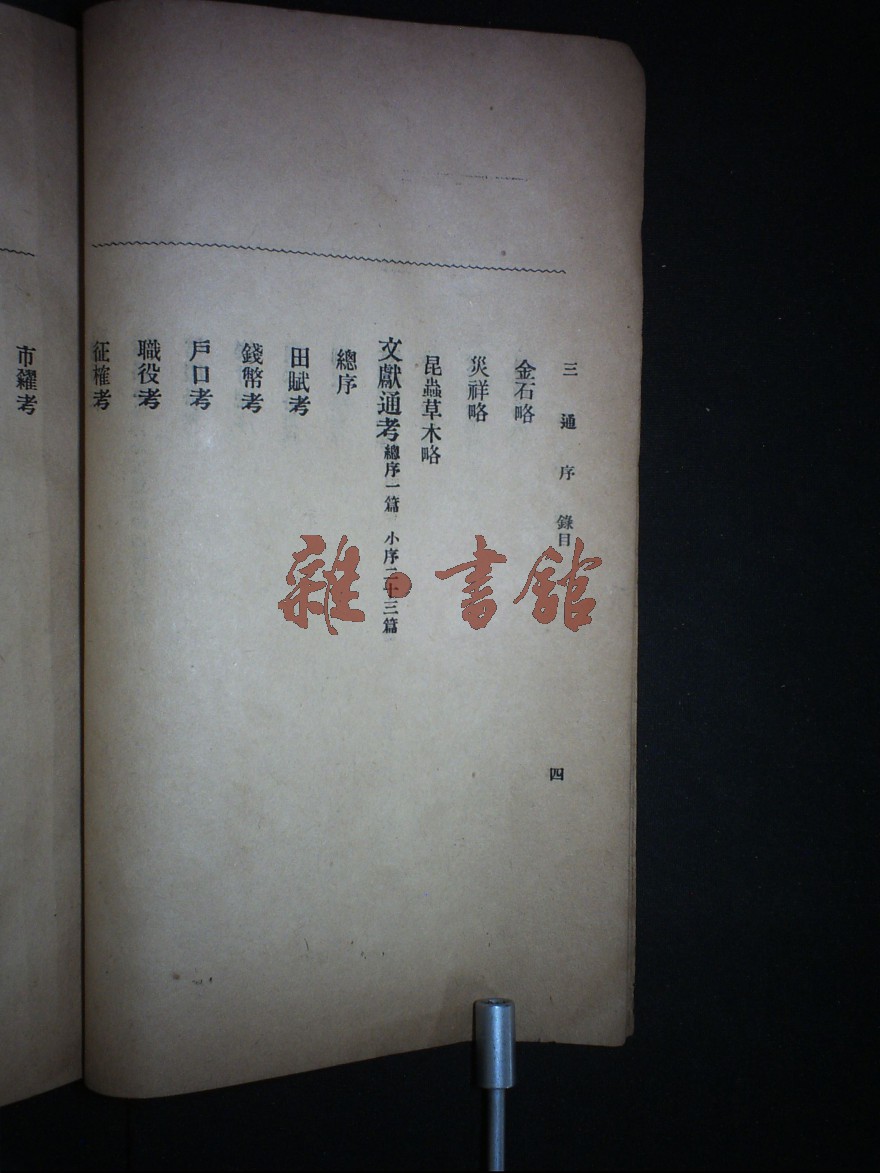 三通序 錄目 四
金石略
災祥略
昆蟲草木略
文獻通考 總序一篇 小序二十三篇
總序
田賦考
錢幣考
戶口考
職役考
征榷考
市糴考
雜·書館